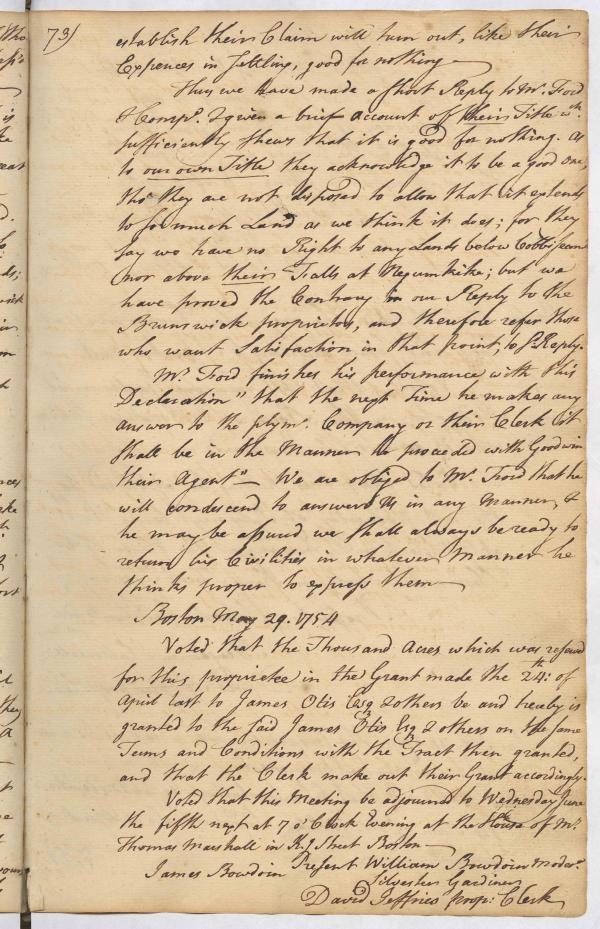 73)
establish their Claim will turn out, like their
Expences in Settling, good for nothing —
Thus we have made a short Reply to Mr. Ford
& Compy. & given a brief account of their Title wch.
sufficiently shews that it is good for nothing. as
to our own Title they acknowledge it to be a good one,
tho they are not disposed to allow that it extends
to so much Land as we think it does; for they
say we have no Right to any Lands below Cobbiseconte
nor above their Falls at Negumkike; but we
have proved the Contrary in our Reply to the
Brunswick proprietors, and therefore refer those
who want Satisfaction in that point, to sd. Reply.
Mr. Ford finishes his performance with this
Declaration " that the next Time he makes any
answer to the plymo. Company or their Clerk it
shall be in the Manner he proceeded with Goodwin
their Agent " — We are obliged to Mr. Ford that he
will condescend to answer us in any Manner, &
he may be assured we shall always be ready to
return his Civilities in whatever Manner he
thinks proper to express them —
Boston May 29. 1754
Voted that the Thousand Acres which was reserved
for this proprietee in the Grant made the 24th: of
April last to James Otis Esq & others be and hereby is
granted to the said James Otis Esq & others on the same
Terms and Conditions with the Tract then granted,
and that the Clerk make out their Grant accordingly.
Voted that this Meeting be adjourned to Wednesday June
the fifth next at 7 o'Clock Evening at the House of Mr.
Thomas Marshall in K.g Street Boston —
Present William Bowdoin Moder.
James Bowdoin
Silvester Gardiner
David Jeffries propr: Clerk